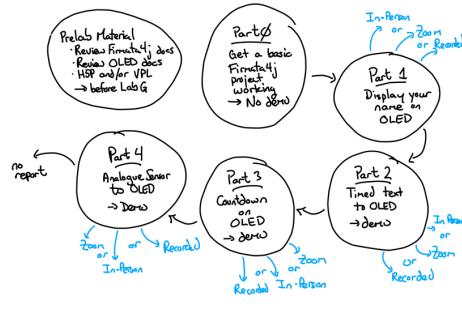 Prelab Material
· Review Firmata4j docs
· Review OLED docs
· HSP and/or VPL
→ before Lab G
Part 0
Get a basic
Firmata4j
project
working
→ No demo
In-Person
or
Zoom
or Recorded
Part 1
Display your
name on
OLED
Part 2
Timed text
to OLED
→ demo
In Person
or
Zoom
or
Recorded
Part 3
Countdown
on
OLED
→ demo
Zoom
or
In-Person
or
Recorded
Part 4
Analogue Sensor
to OLED
→ Demo
Zoom
or
In-Person
or
Recorded
no
report